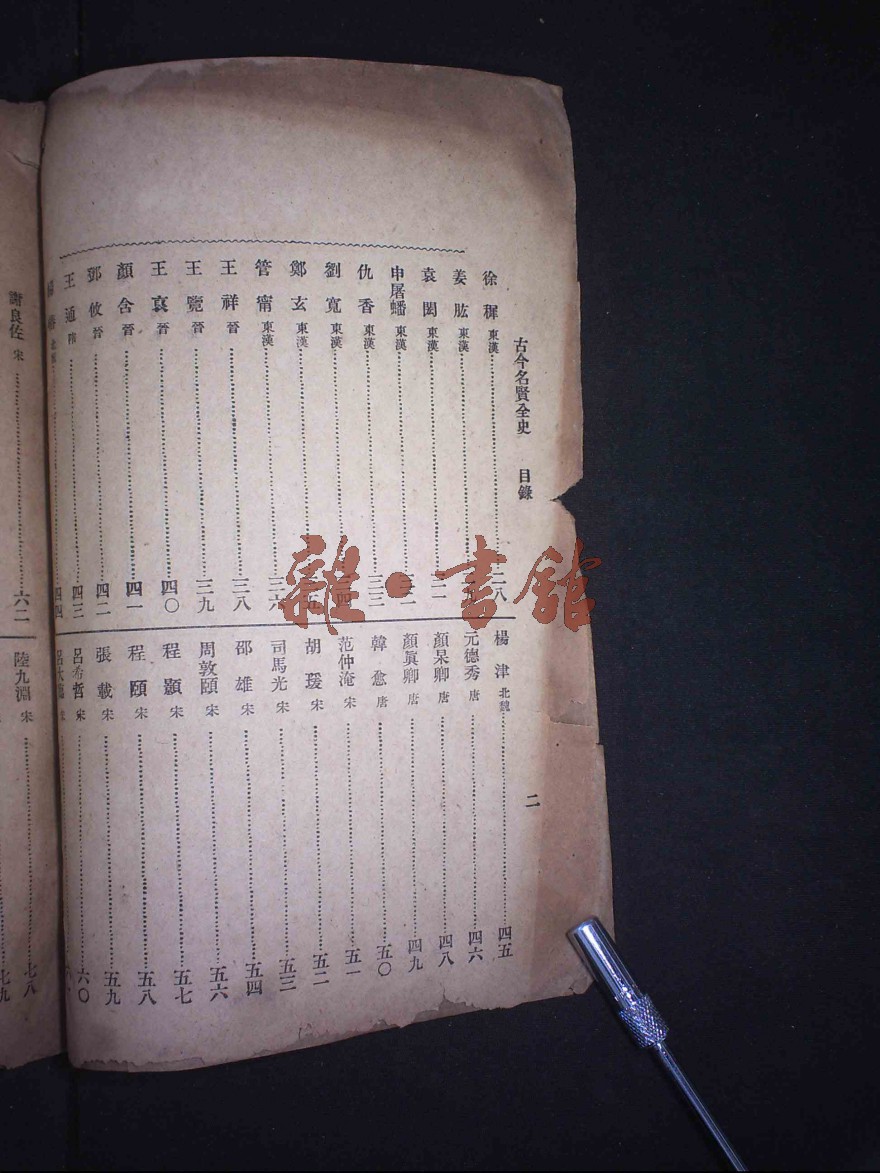 古今名賢全史 目錄
二
徐穉 東漢 二八
姜肱 東漢
袁閎 東漢
申屠蟠 東漢
仇香 東漢 三三
劉寬 東漢
鄭玄 東漢
管甯 東漢 三六
王祥 晉 三八
王覽 晉 三九
王裒 晉 四〇
顏含 晉 四一
鄧攸 晉 四二
王通 隋 四三
四四
楊津 北魏 四五
元德秀 唐 四六
顏杲卿 唐 四八
顏眞卿 唐 四九
韓愈 唐 五〇
范仲淹 宋 五一
胡瑗 宋 五二
司馬光 宋 五三
邵雄 宋 五四
周敦頤 宋 五六
程顥 宋 五七
程頤 宋 五八
張載 宋 五九
呂希哲 宋 六〇
呂大臨 宋
謝良佐 宋 六二
陸九淵 宋 七八
七九
雜·書館